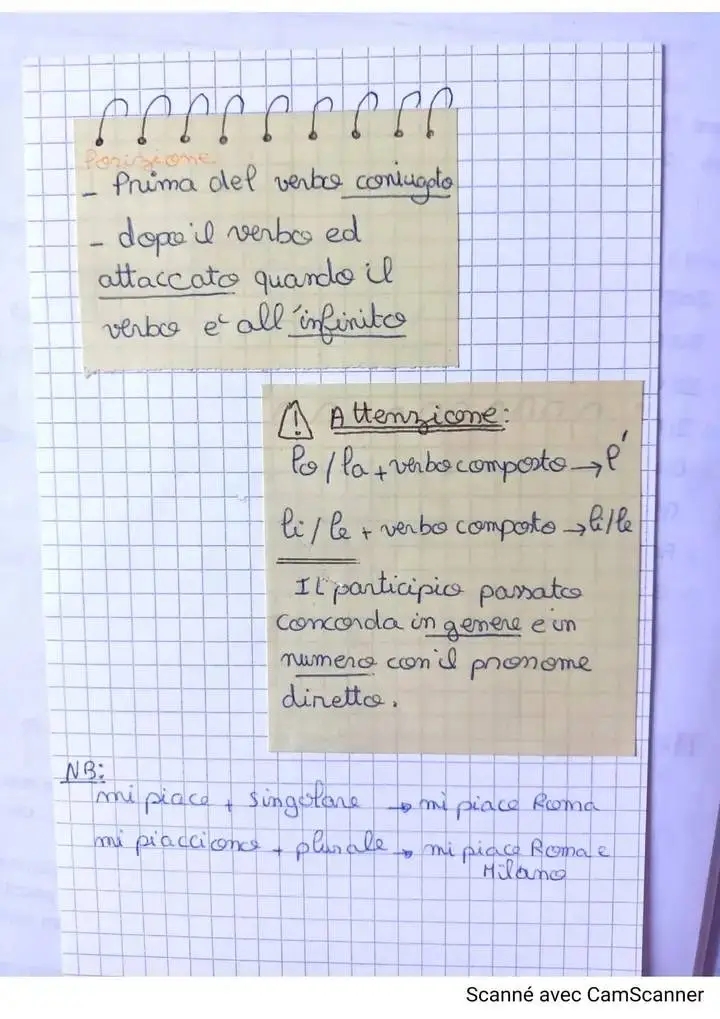 Posizione
- Prima del verbo coniugato
- dopo il verbo ed
attaccato quando il
verbo e' all'infinito
⚠ Attenzione:
lo/la + verbo composto → l'
li/le + verbo composto → li/le
Il participio passato
concorda in genere e in
numero con il pronome
diretto.
NB:
mi piace + singolare → mi piace Roma
mi piaccione + plurale → mi piace Roma e
Milano
Scanné avec CamScanner